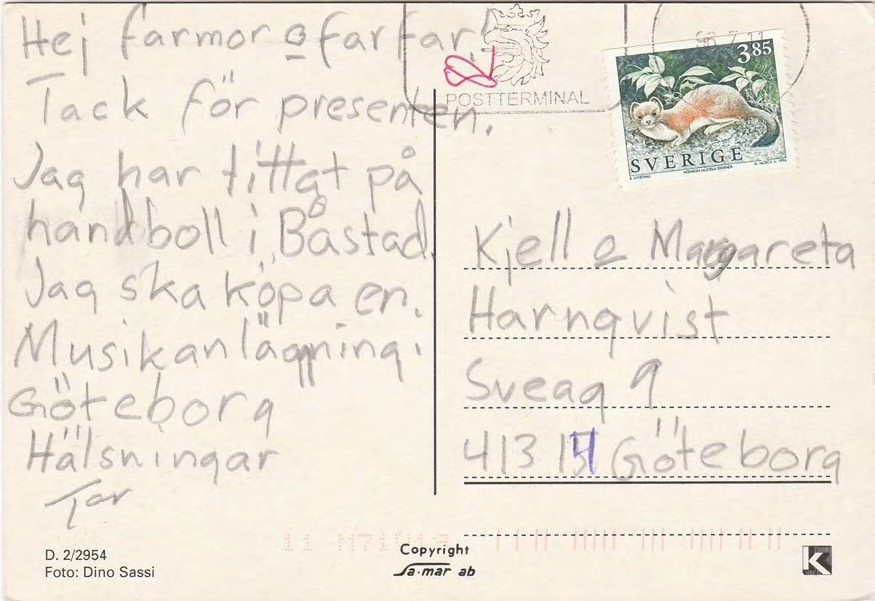 Hej farmor o farfar!
Tack för presenten.
Jag har tittat på
handboll i Båstad.
Jag ska köpa en.
Musikanläggning i
Göteborg
Hälsningar
Tor
POSTTERMINAL
3.85
SVERIGE
Kjell o Margareta
Harnqvist
Sveag 9
413 14 Göteborg
D. 2/2954
Foto: Dino Sassi
Copyright
Sa-mar ab
K